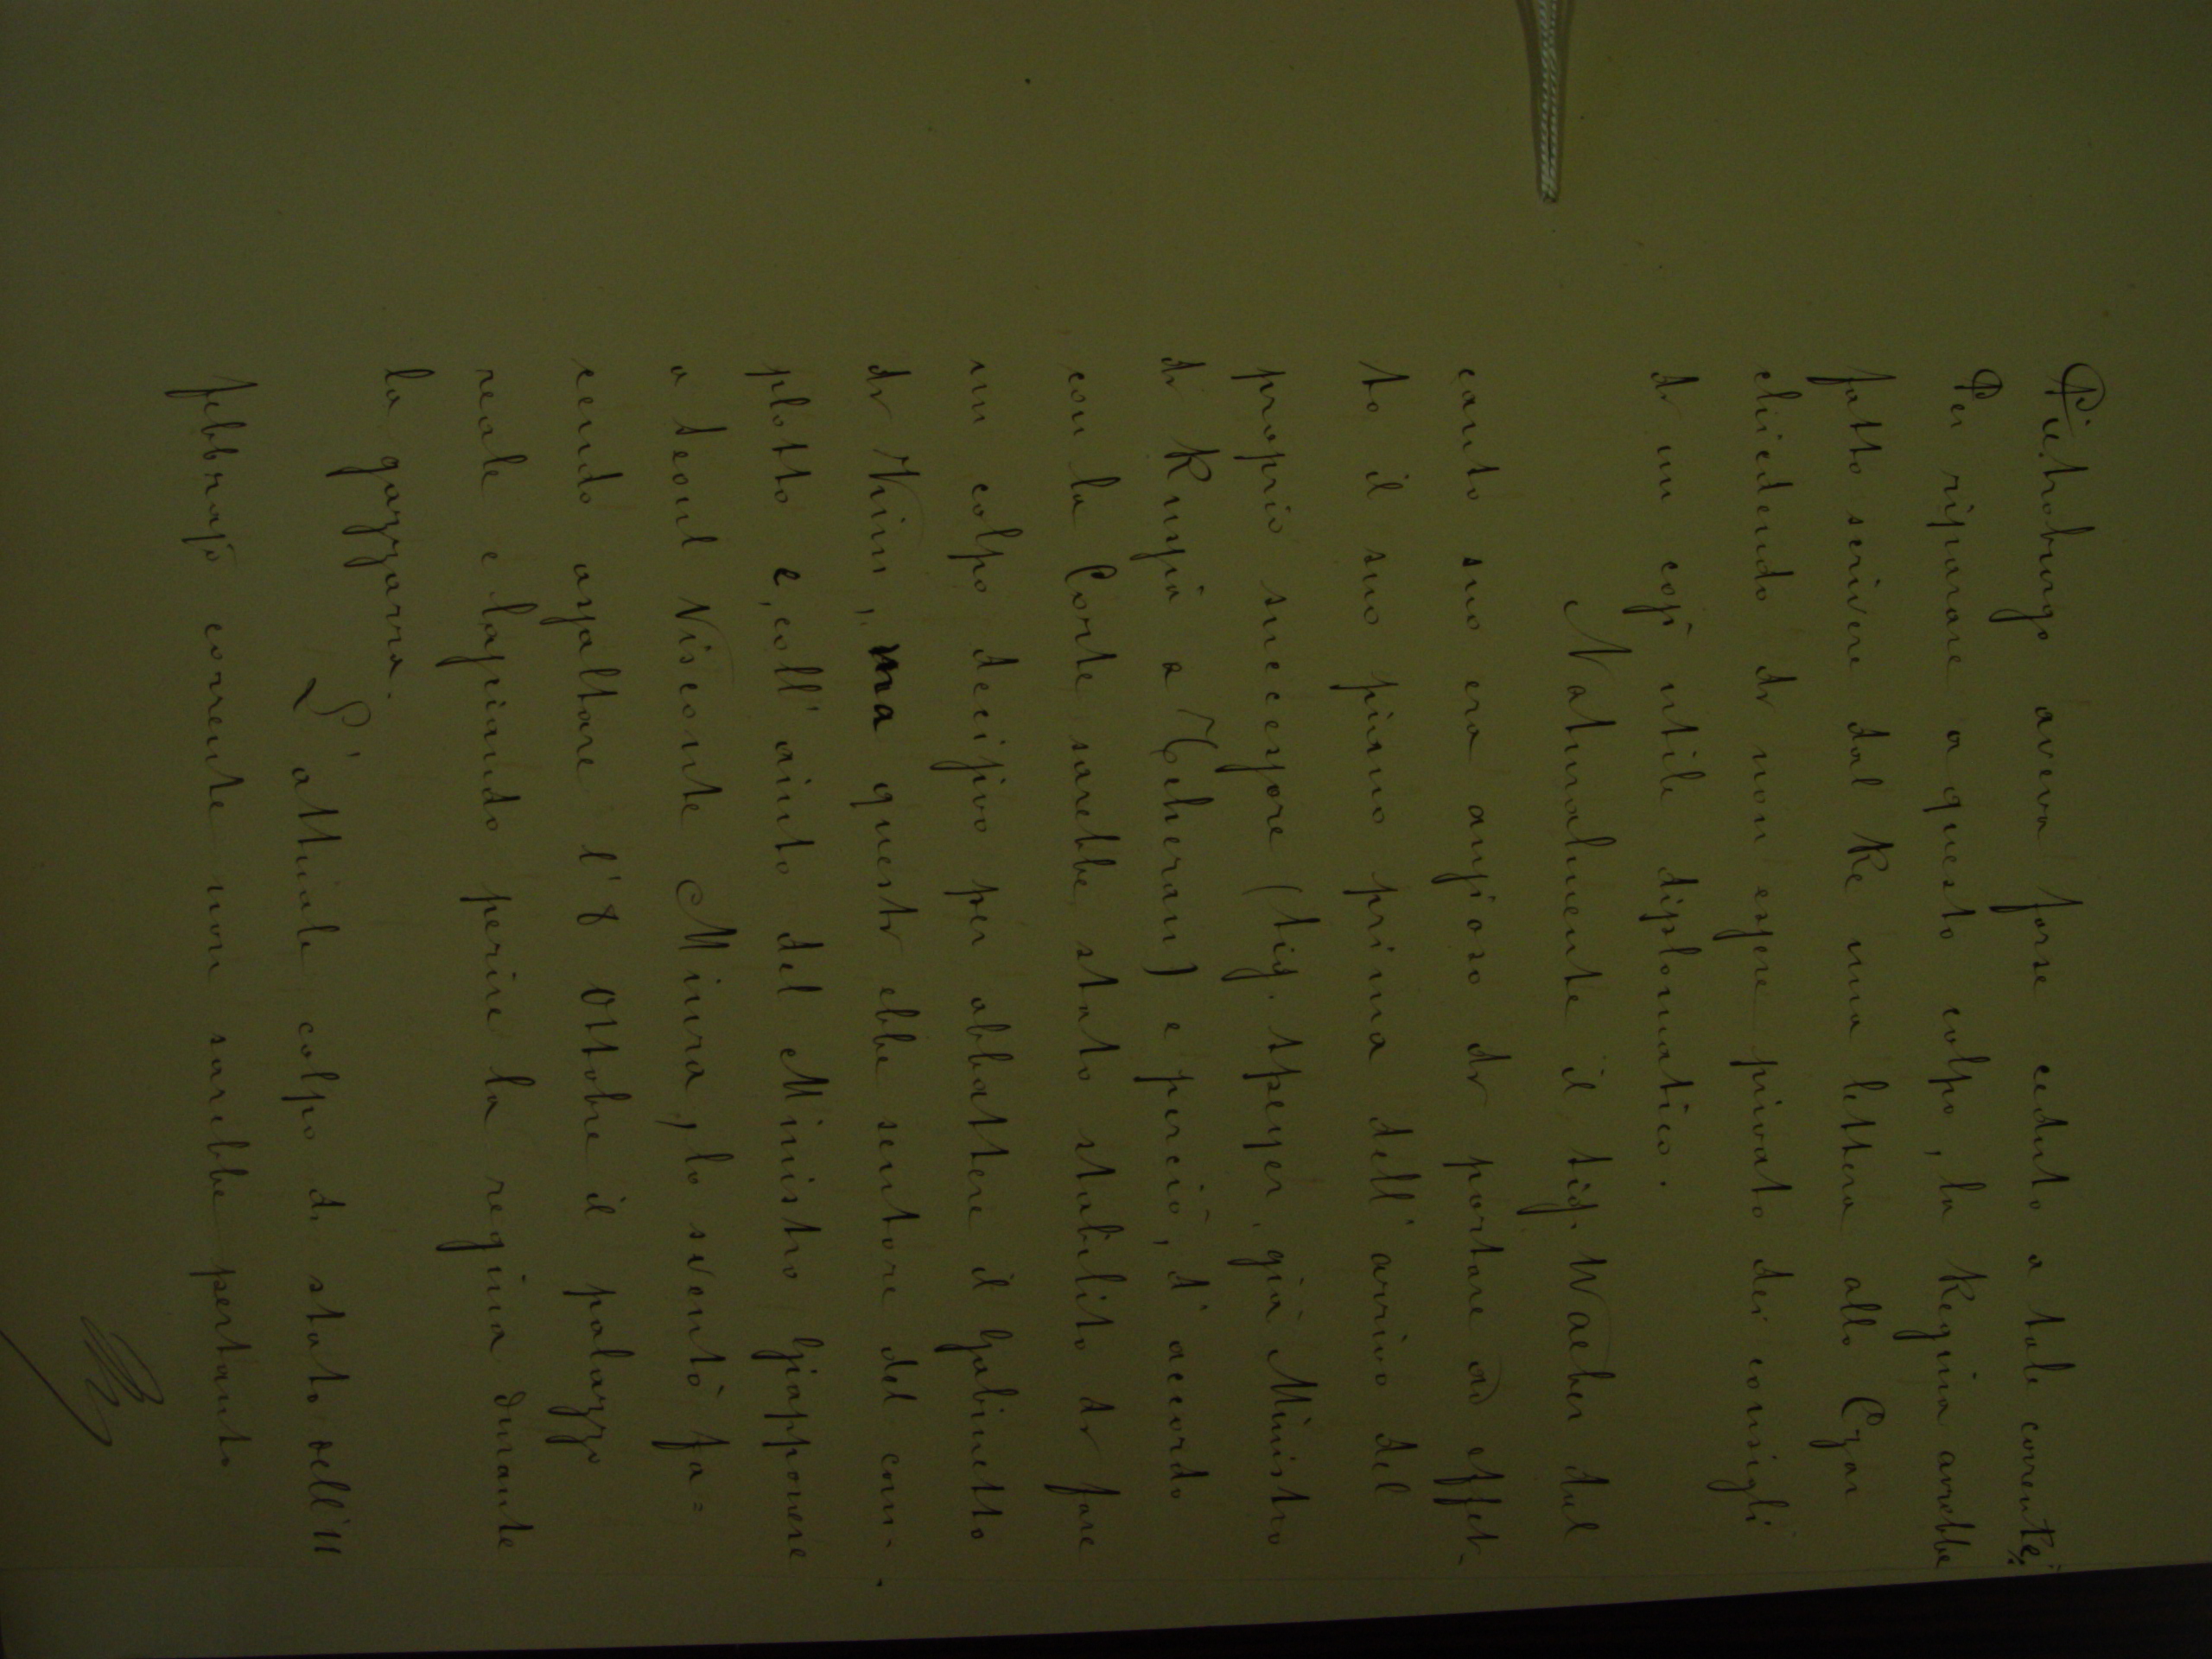 Pietroburgo aveva forse ceduto a tale corrente;
Per riparare a questo colpo, la Regina avrebbe
fatto scrivere dal Re una lettera allo Czar
chiedendo di non essere privato dei consigli
di un così utile diplomatico.
Naturalmente il Sig. Waeber dal
canto suo era ansioso di portare ad effet-
to il suo piano prima dell'arrivo del
proprio successore (Sig. Speyer, già Ministro
di Russia a Teheran) e perciò, d'accordo
con la Corte sarebbe stato stabilito di fare
un colpo decisivo per abbattere il Gabinetto
di Kim, ma questi ebbe sentore del com-
plotto e, coll'aiuto del Ministro Giapponese
a Seoul Visconte Miura, lo sventò fa=
cendo assaltare l'8 Ottobre il palazzo
reale e lasciando perire la regina durante
la gazzarra.
L'attuale colpo di stato dell'11
febbrajo corrente non sarebbe pertanto